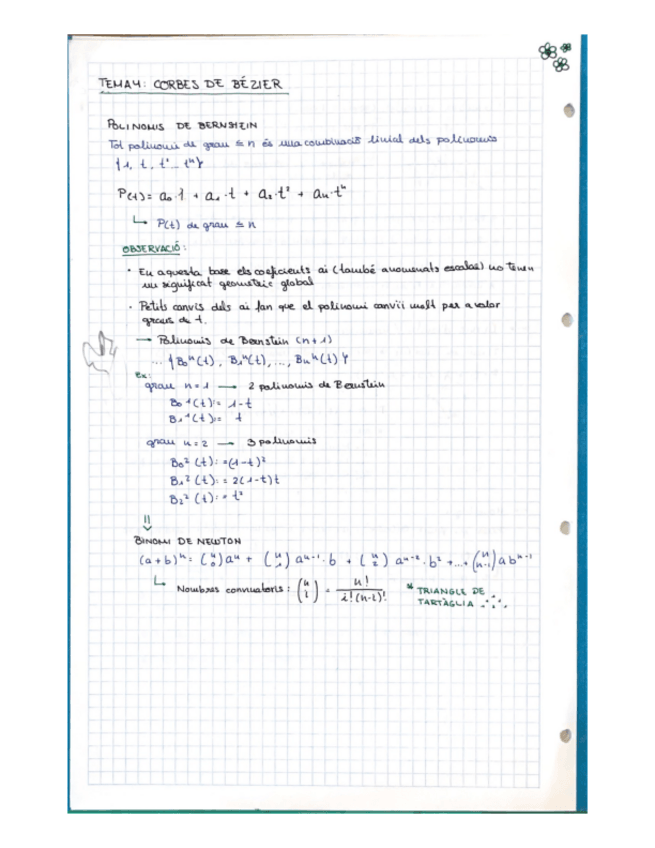 TEMA 4: CORBES DE BÉZIER
POLINOMIS DE BERNSTEIN
Tot polinomi de grau ≤ n és una combinació linial dels polinomis
{1, t, t² ... tⁿ}
P(t) = a₀·1 + a₁·t + a₂·t² + aₙ·tⁿ
↳ P(t) de grau ≤ n
OBSERVACIÓ:
· En aquesta base els coeficients ai (també anomenats escalas) no tenen
un significat geomètric global
· Petits canvis dels ai fan que el polinomi canviï molt per a valor
grans de t.
→ Polinomis de Bernstein (n+1)
... {B₀ⁿ(t), B₁ⁿ(t), ..., Bₙⁿ(t)}
Ex:
grau n=1 → 2 polinomis de Bernstein
B₀¹(t):= 1-t
B₁¹(t):= t
grau n=2 → 3 polinomis
B₀²(t):=(1-t)²
B₁²(t):= 2(1-t)t
B₂²(t):= t²
⇓
BINOMI DE NEWTON
(a+b)ⁿ = (n 0)aⁿ + (n 1) aⁿ⁻¹·b + (n 2) aⁿ⁻²·b² + ... + (n n-1) a bⁿ⁻¹
↳ Nombres : (n i) = n! / i!(n-i)! * TRIANGLE DE
TARTÀGLIA